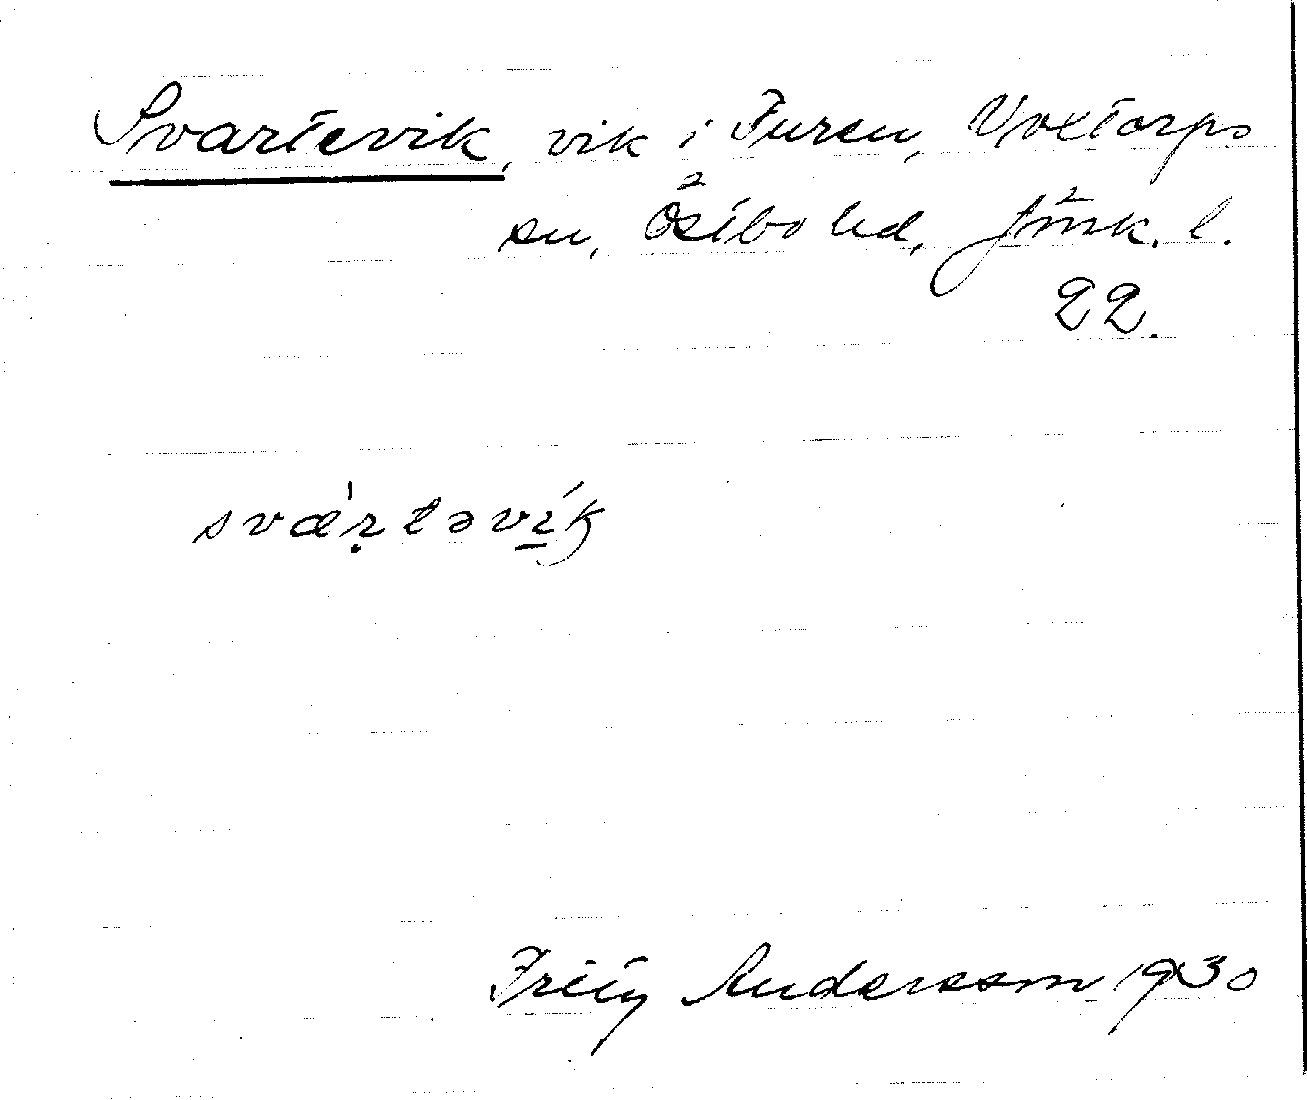 Svartevik, vik i Furen, Voxtorps
sn, Östbo hd, Jönk. l.
22.
svártəvík
Frity Andersson 1930